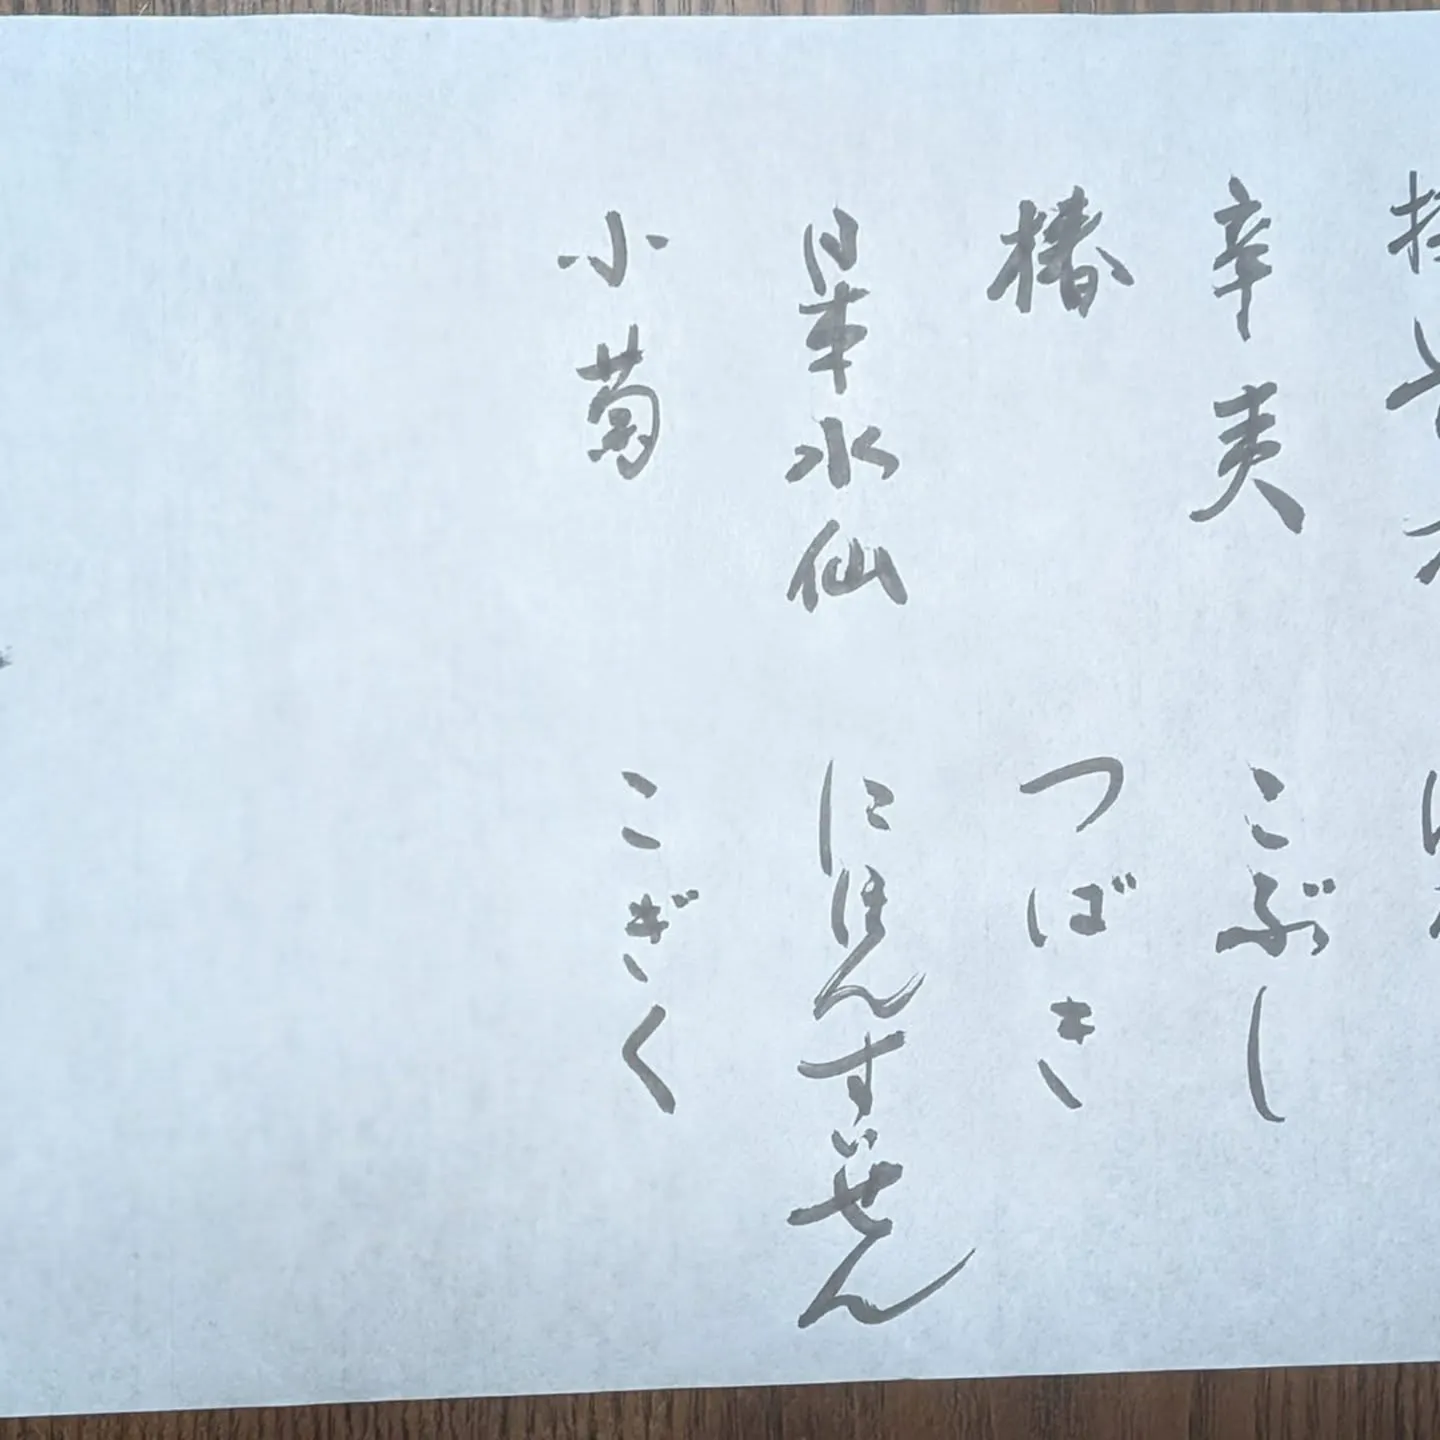 辛夷 こぶし
椿 つばき
日本水仙 にほんすいせん
小菊 こぎく